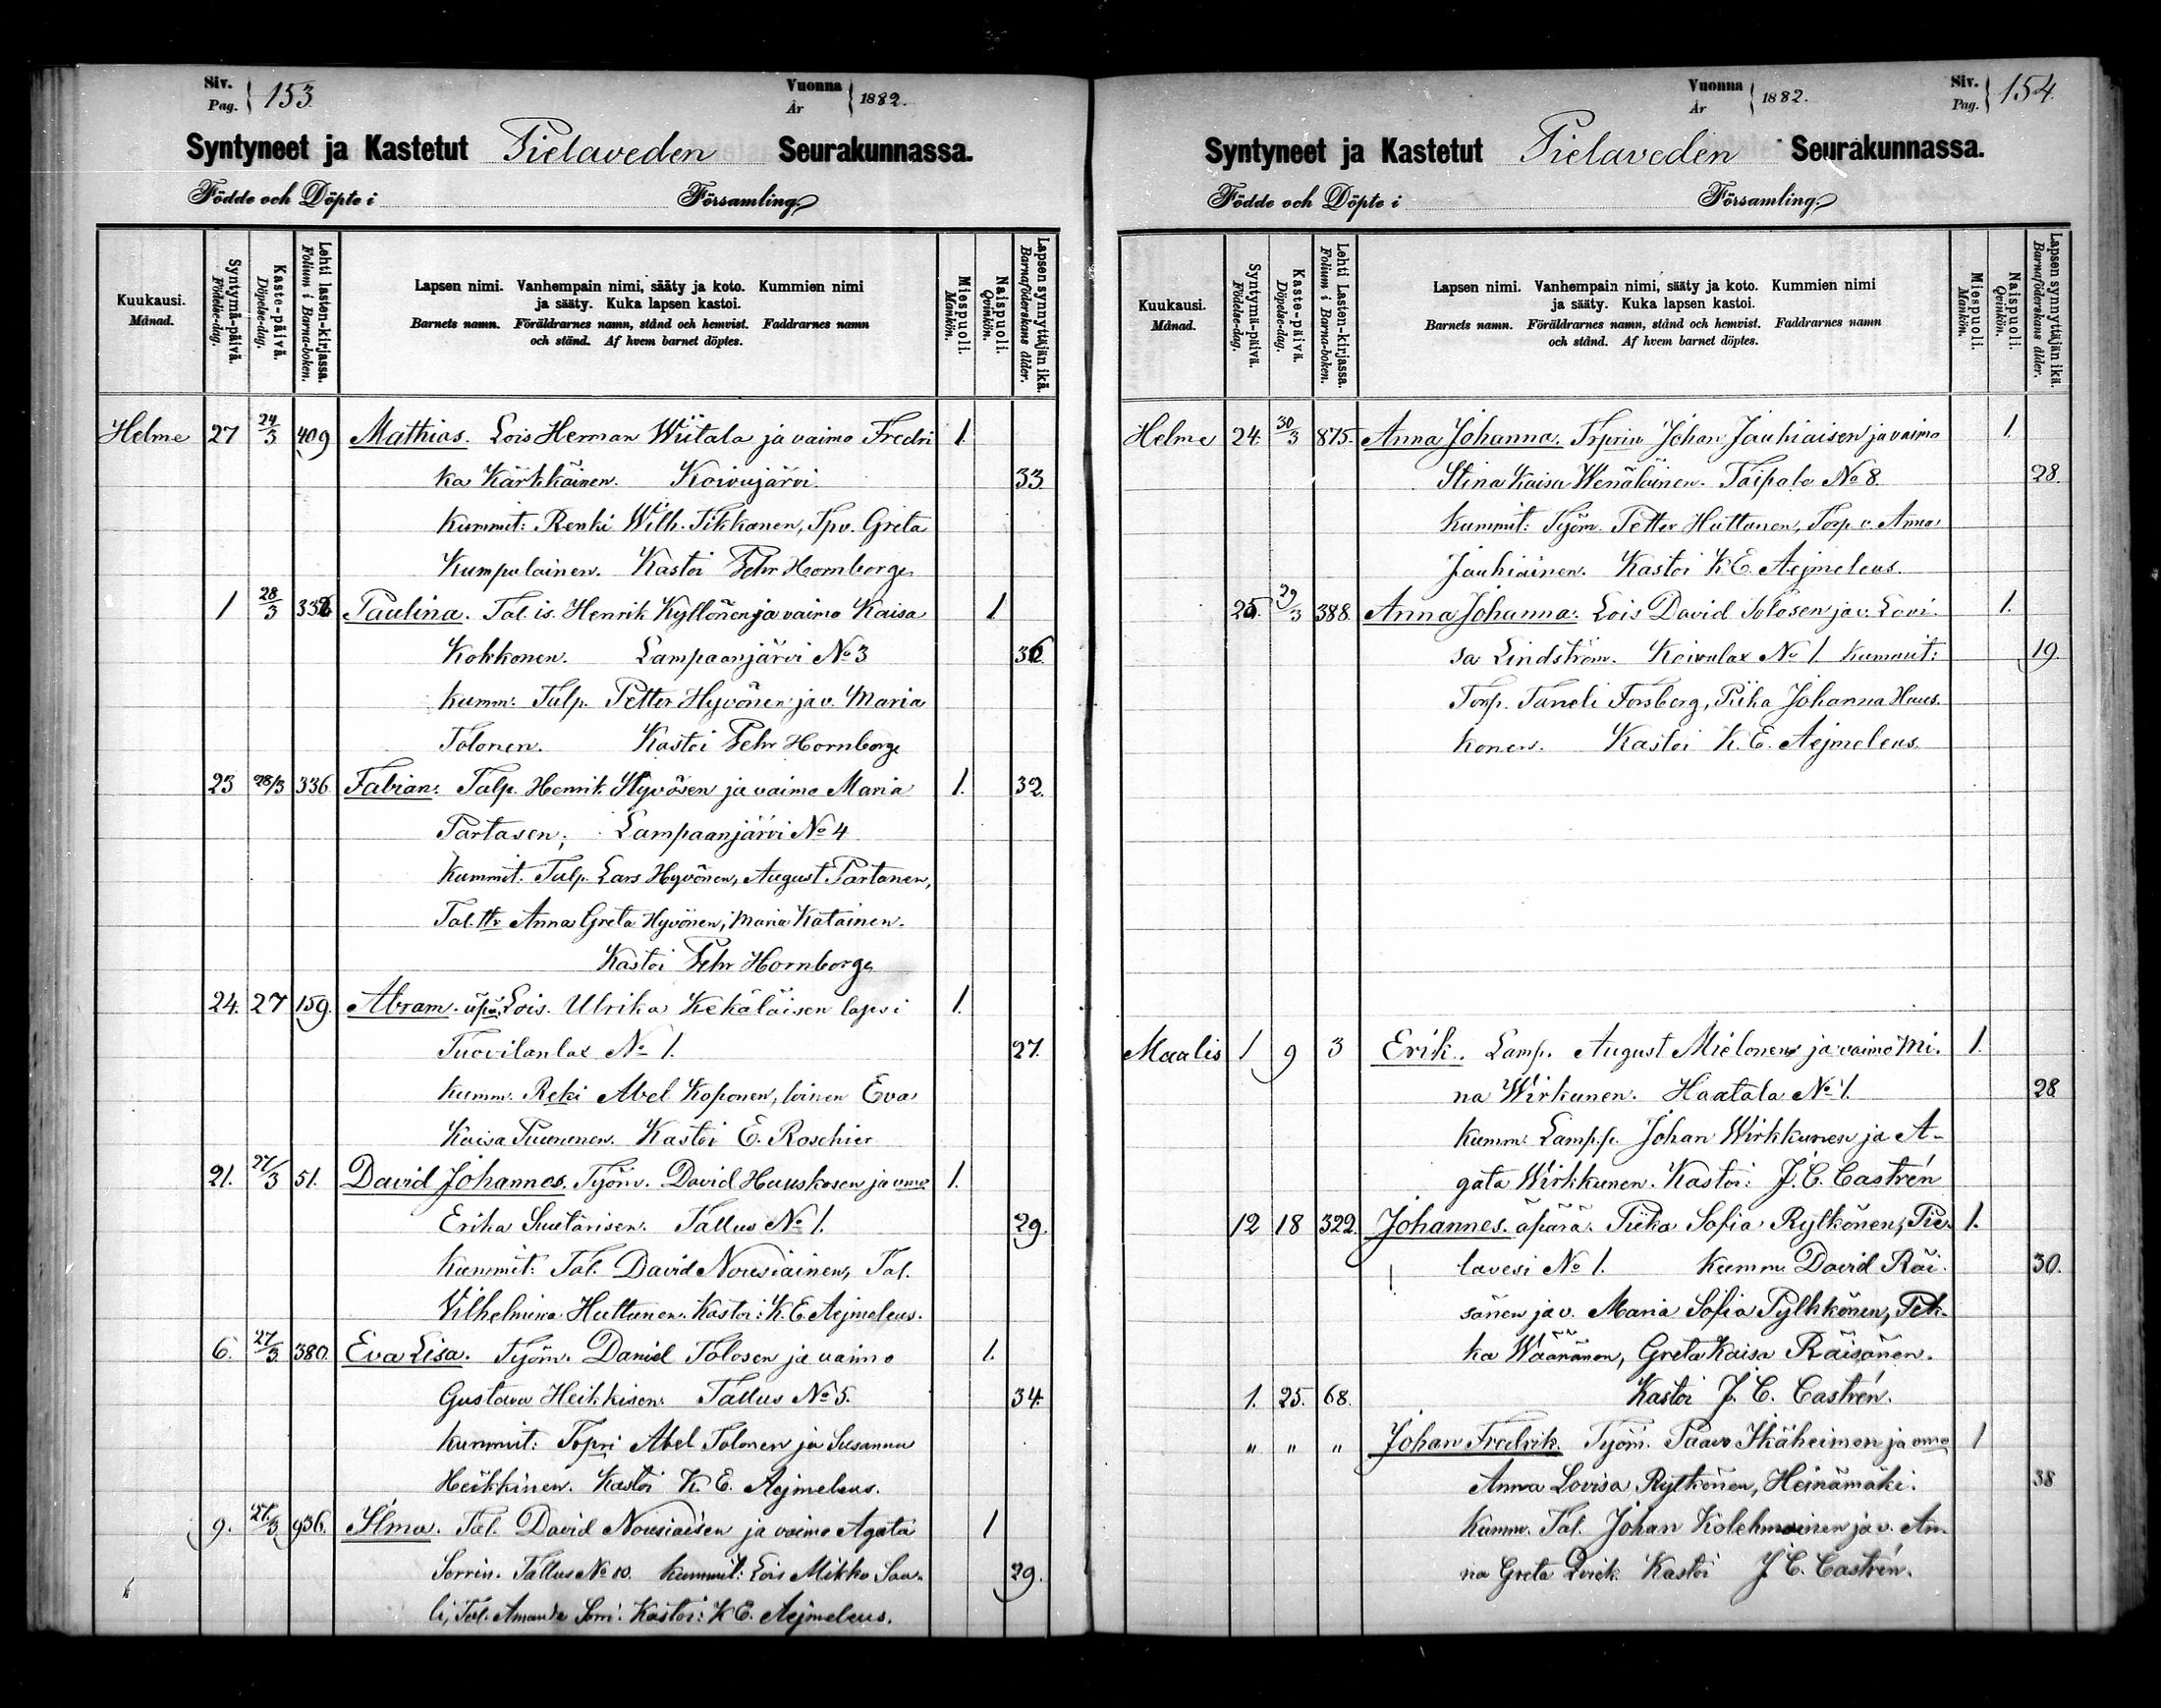 Siv.
Pag. 153
Vuonna
År 1882.
Syntyneet ja Kastetut Pielaveden Seurakunnassa.
Födde och Döpte i Församling
Kuukausi.
Månad.
Syntymä-päivä.
Födelse-dag.
Kaste-päivä.
Döpelse-dag.
Lehti lasten-kirjassa.
Folium i Barna-boken.
Lapsen nimi. Vanhempain nimi, sääty ja koto. Kummien nimi
ja sääty. Kuka lapsen kastoi.
Barnets namn. Föräldrarnes namn, stånd och hemvist. Faddrarnes namn
och stånd. Af hvem barnet döptes.
Miespuoli.
Mankön.
Naispuoli.
Qvinkön.
Lapsen synnyttäjän ikä.
Barnaföderskans ålder.
Helme 27 24/3 409 Mathias. Lois Herman Wiitala ja vaimo Fredri 1.
ka Kärkkäinen. Koivujärvi. 33
Kummit: Renki Wilh. Tikkanen, Tpv. Greta
Kumpulainen. Kastoi Pehr Hornborg
1 28/3 Paulina. Tal. is. Henrik Kyllönen ja vaimo Kaisa 1.
Kokkonen. Lampaanjärvi No 3 36
Kumm: Talp. Petter Hyvönen ja v. Maria
Tolonen. Kastoi Pehr Hornborg
23 28/3 336 Fabian. Talp. Henrik Hyvösen ja vaimo Maria 1. 32.
Partasen; Lampaanjärvi No 4
Kummit. Talp. Lars Hyvönen, August Partanen,
Tal. ttr Anna Greta Hyvönen, Maria Katainen.
Kastoi Pehr Hornborg
24. 27 159. Abram. äpä. Lois. Ulrika Kekäläisen lapsi 1.
Tuovilanlax No 1. 27.
Kumm. Reki Abel Koponen, loinen Eva
Kaisa Puurunen. Kastoi E. Roschier
21. 27/3 51. David Johannes. Työm. David Hauskosen ja vmo 1.
Erika Suutarisen. Tallus No 1. 29.
Kummit: Tal. David Nousiainen, Tal.
Vilhelmina Huttunen. Kastoi: K. E. Aejmeleus.
6. 27/3 380. Eva Lisa. Työm. Daniel Tolosen ja vaimo 1.
Gustava Heikkisen. Tallus No 5. 34.
Kummit: Torpri Abel Tolonen ja Susanna
Heikkinen. Kastoi K. E. Aejmeleus.
9. 27/3 936. Ilma. Tal. David Nousiaisen ja vaimo Agata 1
Sorrin. Tallus No 10. Kummit: Lois Mikko Sau-
li, Tal. Amanda Sorri. Kastoi: K. E. Aejmeleus.
Vuonna
År 1882.
Siv.
Pag. 154.
Syntyneet ja Kastetut Pielaveden Seurakunnassa.
Födde och Döpte i Församling.
Kuukausi.
Månad.
Syntymä-päivä.
Födelse-dag.
Kaste-päivä.
Döpelse-dag.
Lehti Lasten-kirjassa.
Folium i Barna-boken.
Lapsen nimi. Vanhempain nimi, sääty ja koto. Kummien nimi
ja sääty. Kuka lapsen kastoi.
Barnets namn. Föräldrarnes namn, stånd och hemvist. Faddrarnes namn
och stånd. Af hvem barnet döptes.
Miespuoli.
Mankön.
Naispuoli.
Qvinkön.
Lapsen synnyttäjän ikä.
Barnaföderskans ålder.
Helme 24. 30/3 875. Anna Johanna. Trprin Johan Jauhiaisen ja vaimo 1.
Stina Kaisa Wenäläinen. Taipale No 8. 28.
Kummit: Työm. Petter Huttunen, Torp. v. Anna
Jauhiainen. Kastoi K. E. Aejmeleus.
25. 29/3 388. Anna Johanna: Lois David Tolosen ja v. Lovi- 1.
sa Lindström. Koivulax No 1 Kummit: 19.
Torp. Taneli Forsberg, Piika Johanna Haus-
konen. Kastoi K. E. Aejmeleus.
Maalis 1 9 3 Erik. Lamp. August Mielonen ja vaimo Mi- 1.
na Wirkunen. Haatala No 1. 28
Kumm: Lamp. p. Johan Wirkkunen ja A-
gata Wirkkunen. Kastoi: J. C. Castrén
12 18 322. Johannes. äpärä. Piika Sofia Rytkönen, Pie- 1.
lavesi No 1. Kumm. David Räi- 30.
sänen ja v. Maria Sofia Pylkkönen, Pek-
ka Wäänänen, Greta Kaisa Räisänen.
1. 25. 68. Kastoi J. C. Castrén.
" " " Johan Fredrik. Työm. Paavo Ikäheimon ja vmo 1
Anna Lovisa Rytkönen, Heinämäki. 38
Kumm. Tal. Johan Kolehmainen ja v. An-
na Greta Kastoi J. C. Castrén.